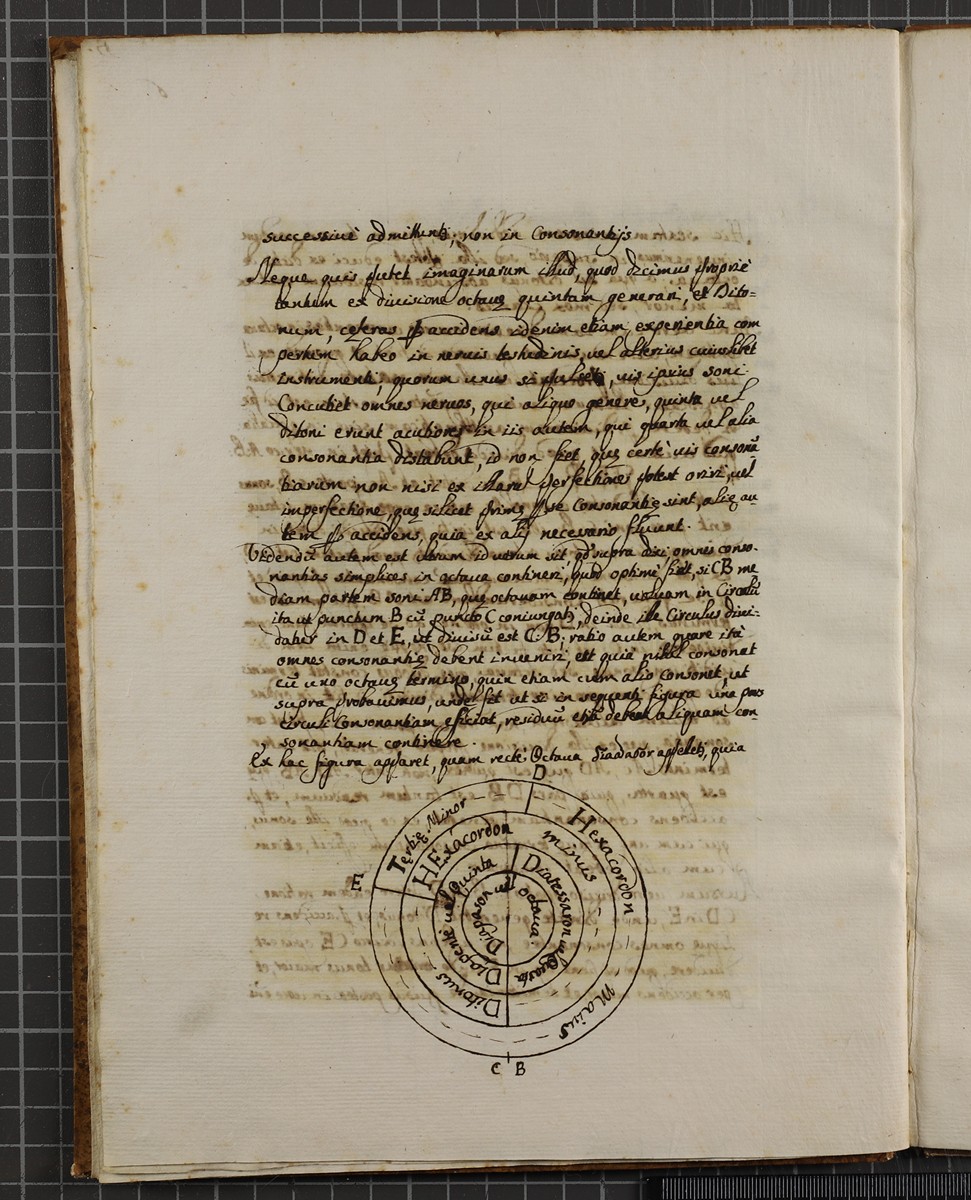 successivè admittunt; non in Consonantijs
Neque quis putet imaginarium illud, quod dicimus propriè
tantum ex divisione octavę quintam generari, et Dito=
num, cęteras p accidens idenim etiam experientia com
pertum habeo in nervis testudinis, vel alterius cuiuslibet
instrumenti, quorum unus si pulsetur, vis ipsius soni
Concutiet omnes nervos, qui aliquo genere, quinta vel
ditoni erunt acutiores in iis autem, qui quarta vel alia
consonantia distabunt, id non fiet, quę certè vis consonā
tiarum non nisi ex illarum perfectione potest oriri, vel
imperfectione, quę silicet primę p se Consonantię sint, alię au
tem p accidens, quia ex alijs necesario fluunt.
Videndū autem est utrum id verum sit, qd supra dixi, omnes conso-
nantias simplices in octava contineri, quod optimè fiet, si CB me
diam partem soni AB, quę octavam continet, volvam in Circulū
ita ut punctum B cū puncto C coniungatur, deinde ille Circulus divi-
datur in D et E, ut divisū est C.B; ratio autem quare ita
omnes consonantię debent inveniri, est quia nihil consonet
cū uno octavę termino, quin etiam cum alio consonet, ut
supra probavimus, unde fit ut si in sequenti figura una pars
circuli Consonantiam eficiat, residuū etiā debeat aliquam con
sonantiam continere.
Ex hac figura apparet, quam rectè Octava diapason appeletur, quia
D
Tertię Minor
Hexacordon
Maius
HExacordon
minus
Ditonus
E
Diapente vel Quinta
Diatessaron vel Quarta
Diapason vel octava
C B